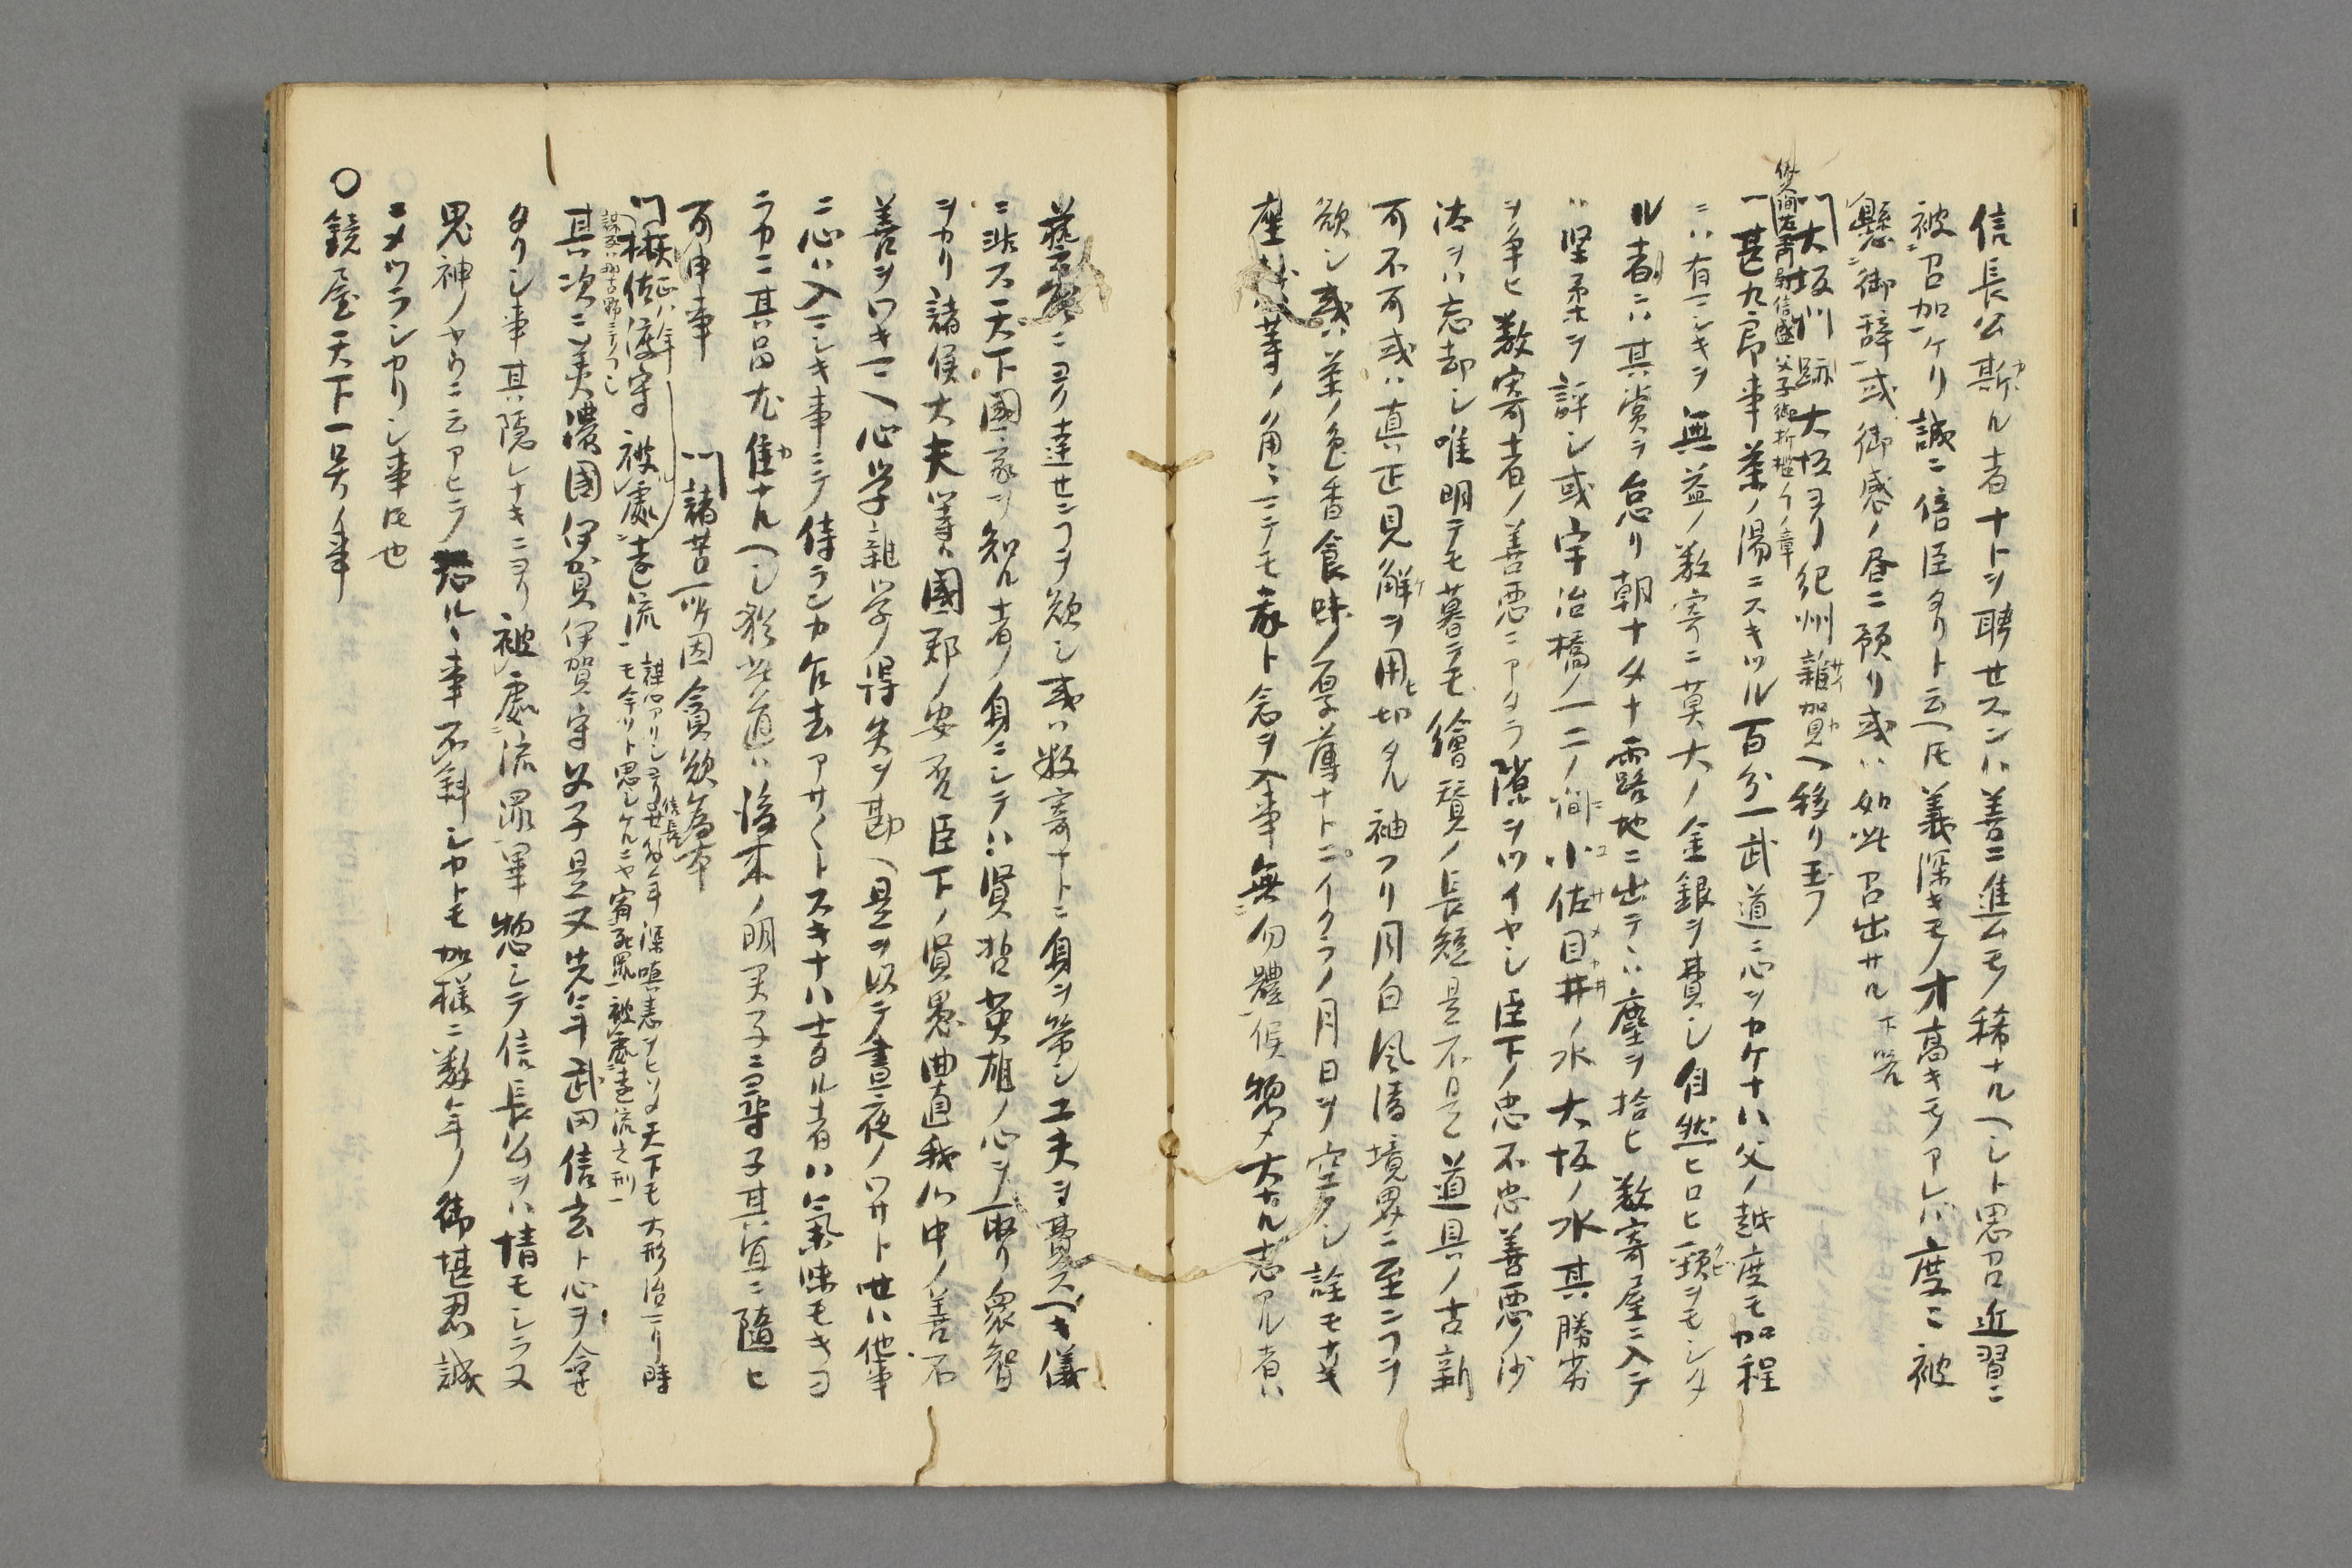 信長公斯ル者ナトヲ聘セスンハ善ニ進ムモノ稀ナルヘシト思召近習ニ
被召加ケリ誠ニ倍臣タリト云ヘ𪜈義深キモノ才高キモノアレハ度ニ被
懸御辞或御感ノ昼ニ預リ或ハ如此召出サル下畧
大坂川跡大坂ヨリ紀州雜賀ヘ移リ玉フ
佐久間右衛門尉信盛父子御折檻ノ章
一甚九郎事茶ノ湯ニスキツル百分一武道ニ心ヲカケナハ父ノ越度モ加程
ニハ有マシキヲ無益ノ数寄ニ莫大ノ金銀ヲ費シ自然ヒロヒ頸ヲモシタ
ル者ニハ其賞ヲ怠リ朝ナタナ露地ニ出テハ塵ヲ拾ヒ数寄屋ニ入テ
ハ堅柔ヲ評シ或宇治橋ノ一二ノ間小佐目井ノ水大坂ノ水其勝劣
ヲ争ヒ数寄者ノ善悪ニアタラ隙ヲツイヤシ臣下ノ忠不忠善悪ノ沙
汰ヲハ忘却シ唯明テモ暮テモ繪賛ノ長短是不是道具ノ古新
可不可或ハ真正見解ヲ用切タル袖フリ月白風清境界ニ至ンフヲ
欲シ或ハ茶ノ色香食味ノ厚薄ナトニイクラノ月日ヲ空クシ詮モナキ
座敷等ノ角ミマテモ家ト念ヲ入事無勿體候惣〆大ナル志アル者ハ
藝寄ニヨク達センフヲ欲シ或ハ数寄ナトニ身ヲ労シ工夫ヲ費スヘキ儀
ニ非ス天下國家ヲ知ル者ノ身ニシテハ賢哲英雄ノ心ヲ取リ衆智
ヲカリ諸侯大夫等ハ國郡ノ安否臣下ノ賢愚曲直我心中ノ善不
善ヲワキマヘ心学雜学ノ得失ヲ勘ヘ是ヲ以テ昼夜ノワサト世ハ他事
ニ心ハ入マシキ事ニテ侍ランカ乍去アサ〱トスキナハ士タル者ハ氣味モキヨ
ラカニ其品尤佳ナルヘシ猶此道ハ後來ノ明君子ニ尋子其宜ニ隨ヒ
可申事　諸苦所因貪欲為本
林佐渡守被處遠流謀心アリシヨリ廿餘年深嗔恚ヲヒソメ天下モ大形治マリ時
モ今ソト思シケルニヤ宥死罪被處遠流之刑
其次ニ美濃國伊賀伊賀守父子是又先年武田信玄ト心ヲ合セ
タリシ事其隠レナキニヨリ被處流罪畢惣シテ信長公ヲハ情モシラヌ
鬼神ノヤウニ云アヒテ恐ルヽ事不斜シカトモ加様ニ数年ノ御堪忍誠
ニメツラシカリシ事𪜈也
〇鏡屋天下一号ノ事